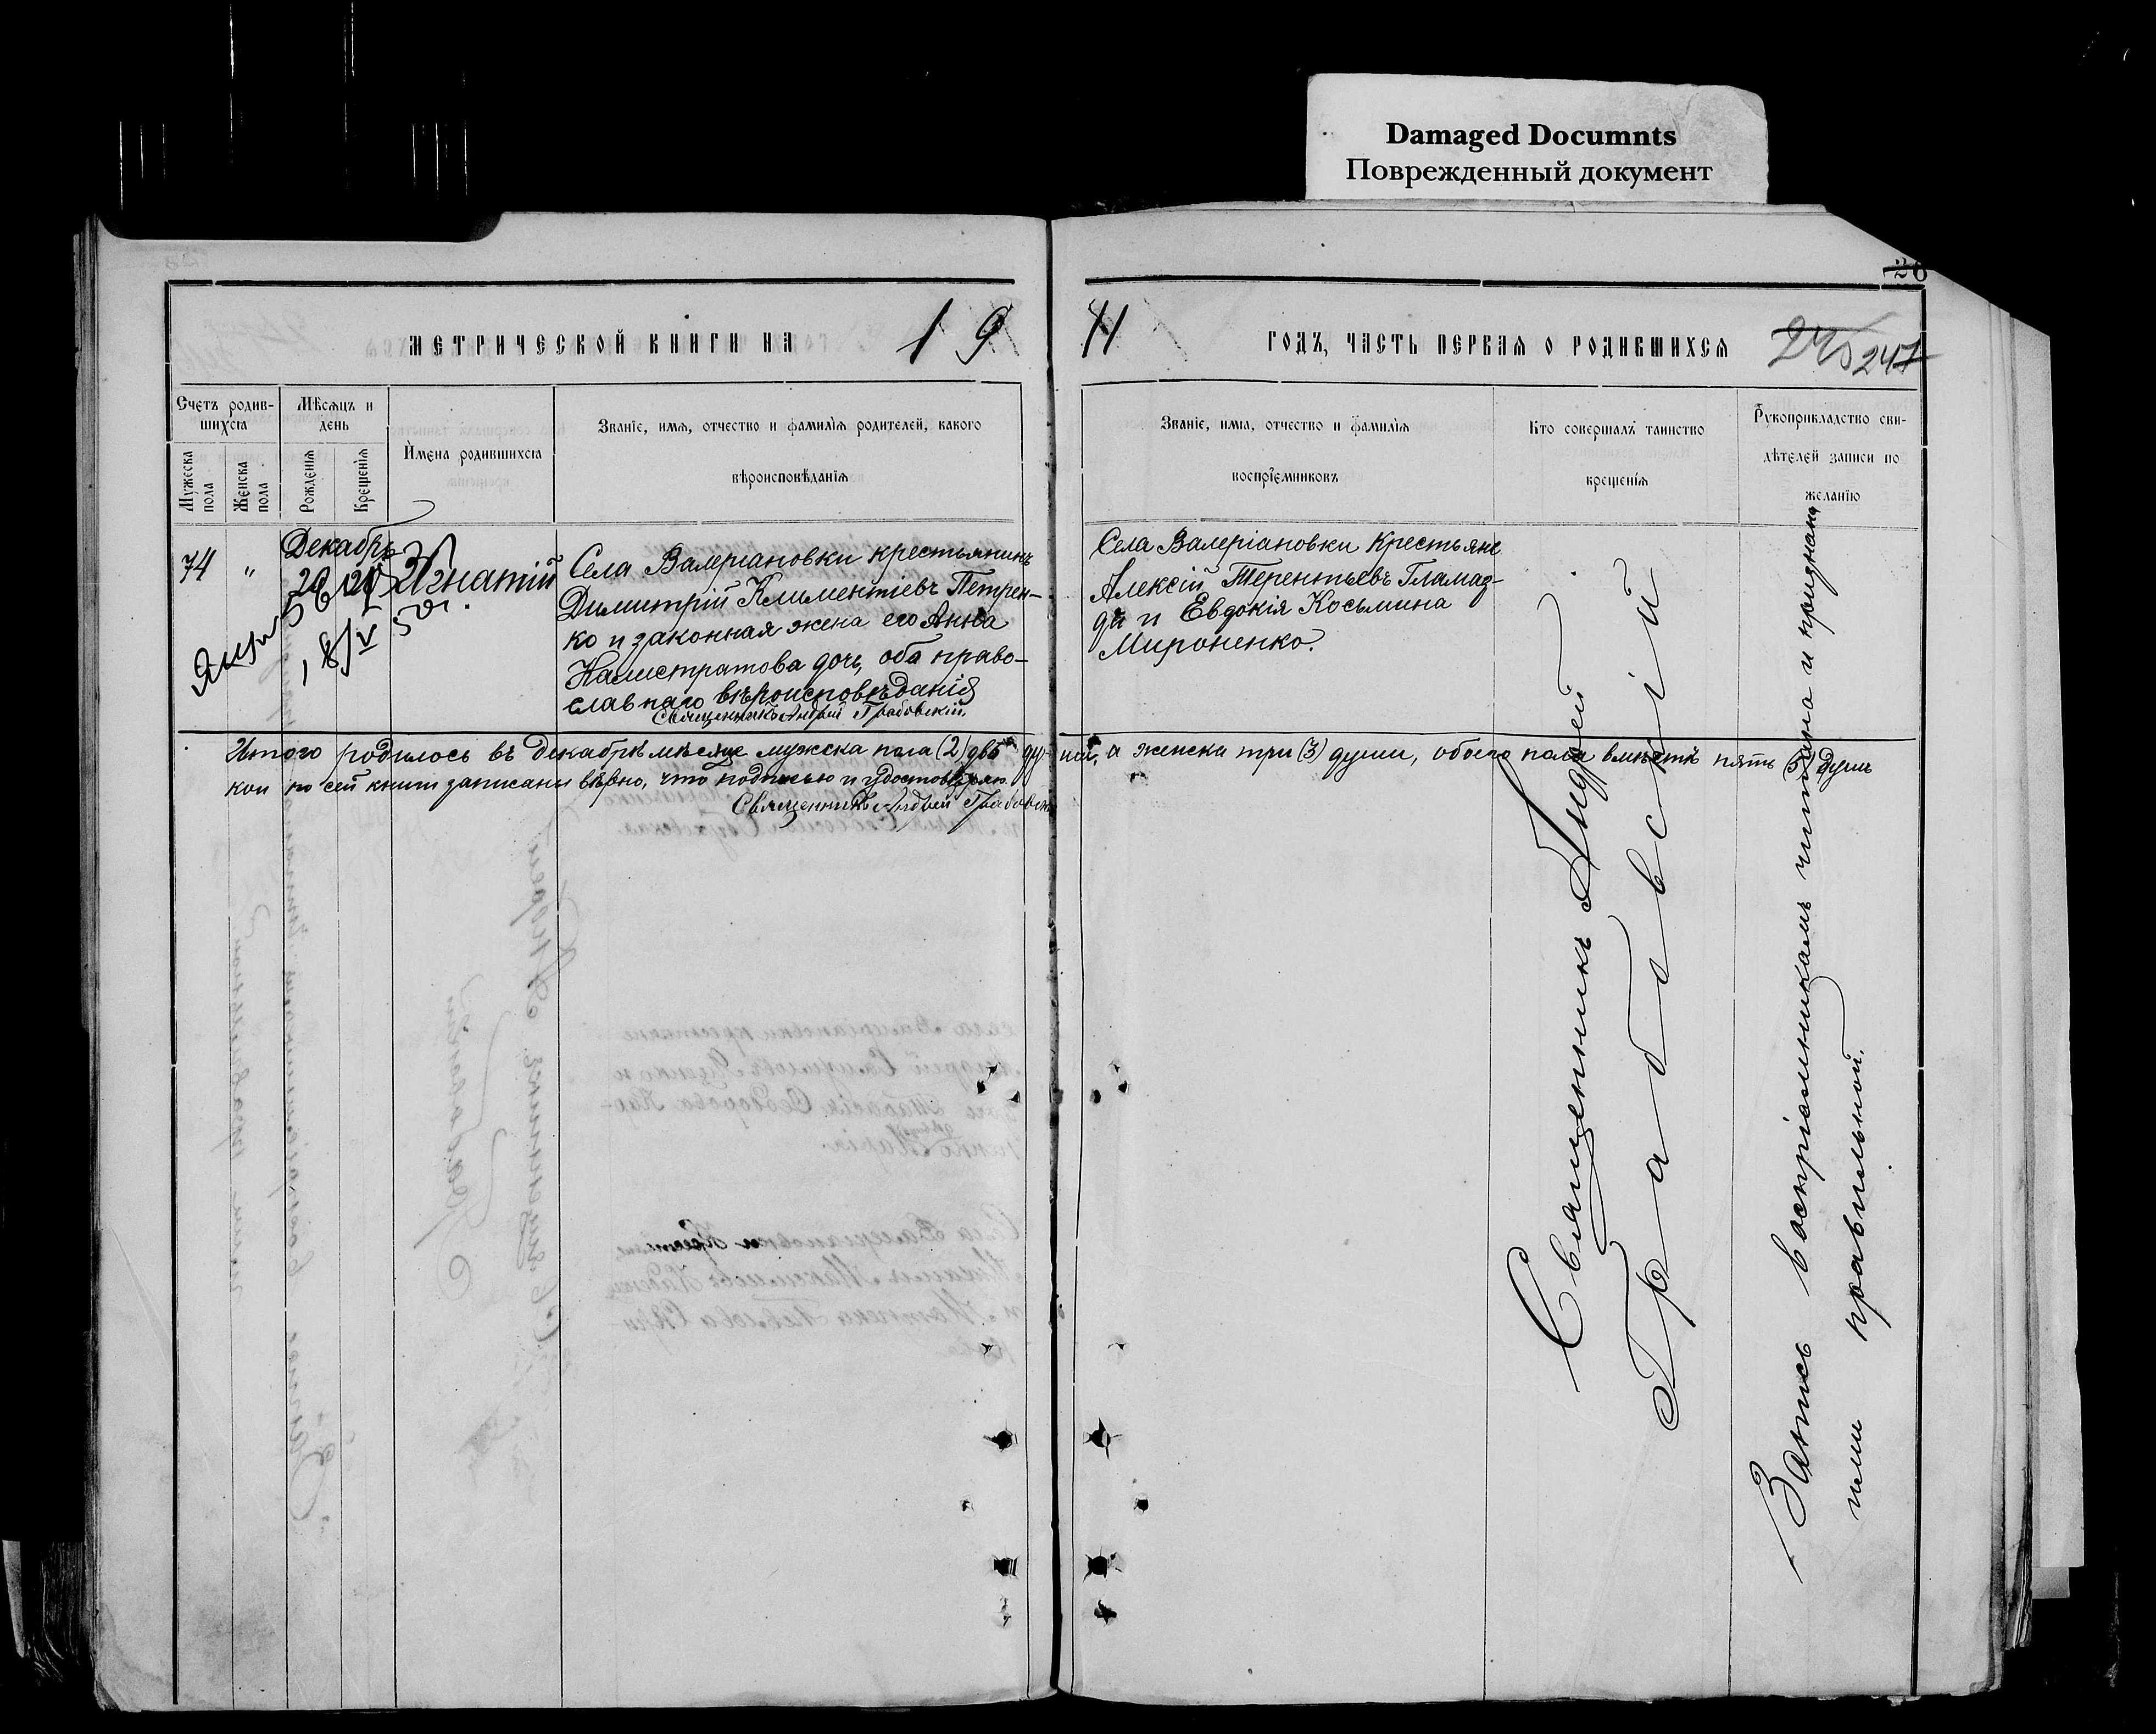 Damaged Documnts
Поврежденный документ
26
МЕТРИЧЕСКОЙ КНИГИ НА 19
11 ГОДЪ, ЧАСТЬ ПЕРВАЯ О РОДИВШИХСЯ
247
Счетъ родив-
шихся
Мѣсяцъ и
день
Мужеска
пола
Женска
пола
Рожденія
Крещенія
Имена родившихся
Званіе, имя, отчество и фамилія родителей, какого
вѣроисповѣданія
Званіе, имя, отчество и фамилія
воспріемниковъ
Кто совершалъ таинство
крещенія
Рукоприкладство сви-
дѣтелей записи по
желанію
Декабрь
74 " 20 Игнатій
Села Валеріановки крестьянинъ
Димитрій Климентіевъ Петрен-
ко и законная жена его Анна
Калистратова дочь, оба право-
славнаго вѣроисповѣданія
Священникъ Андрей Грабовскій.
Села Валеріановки крестьяне
Алексій Терентьевъ Гламаз-
да и Евдокія Косьмина
Мироненко.
Священникъ Андрей
Грабовскій
Запись воспріемникамъ читана и признана
ими правильной.
Итого родилось въ декабрѣ мѣсяце мужска пола (2) двѣ ду-
ши, а женска три (3) души, обоего пола вмѣстѣ пять (5) душъ
кои по сей книги записаны вѣрно, что подписью и удостовѣряю.
Священникъ Андрей Грабовскій